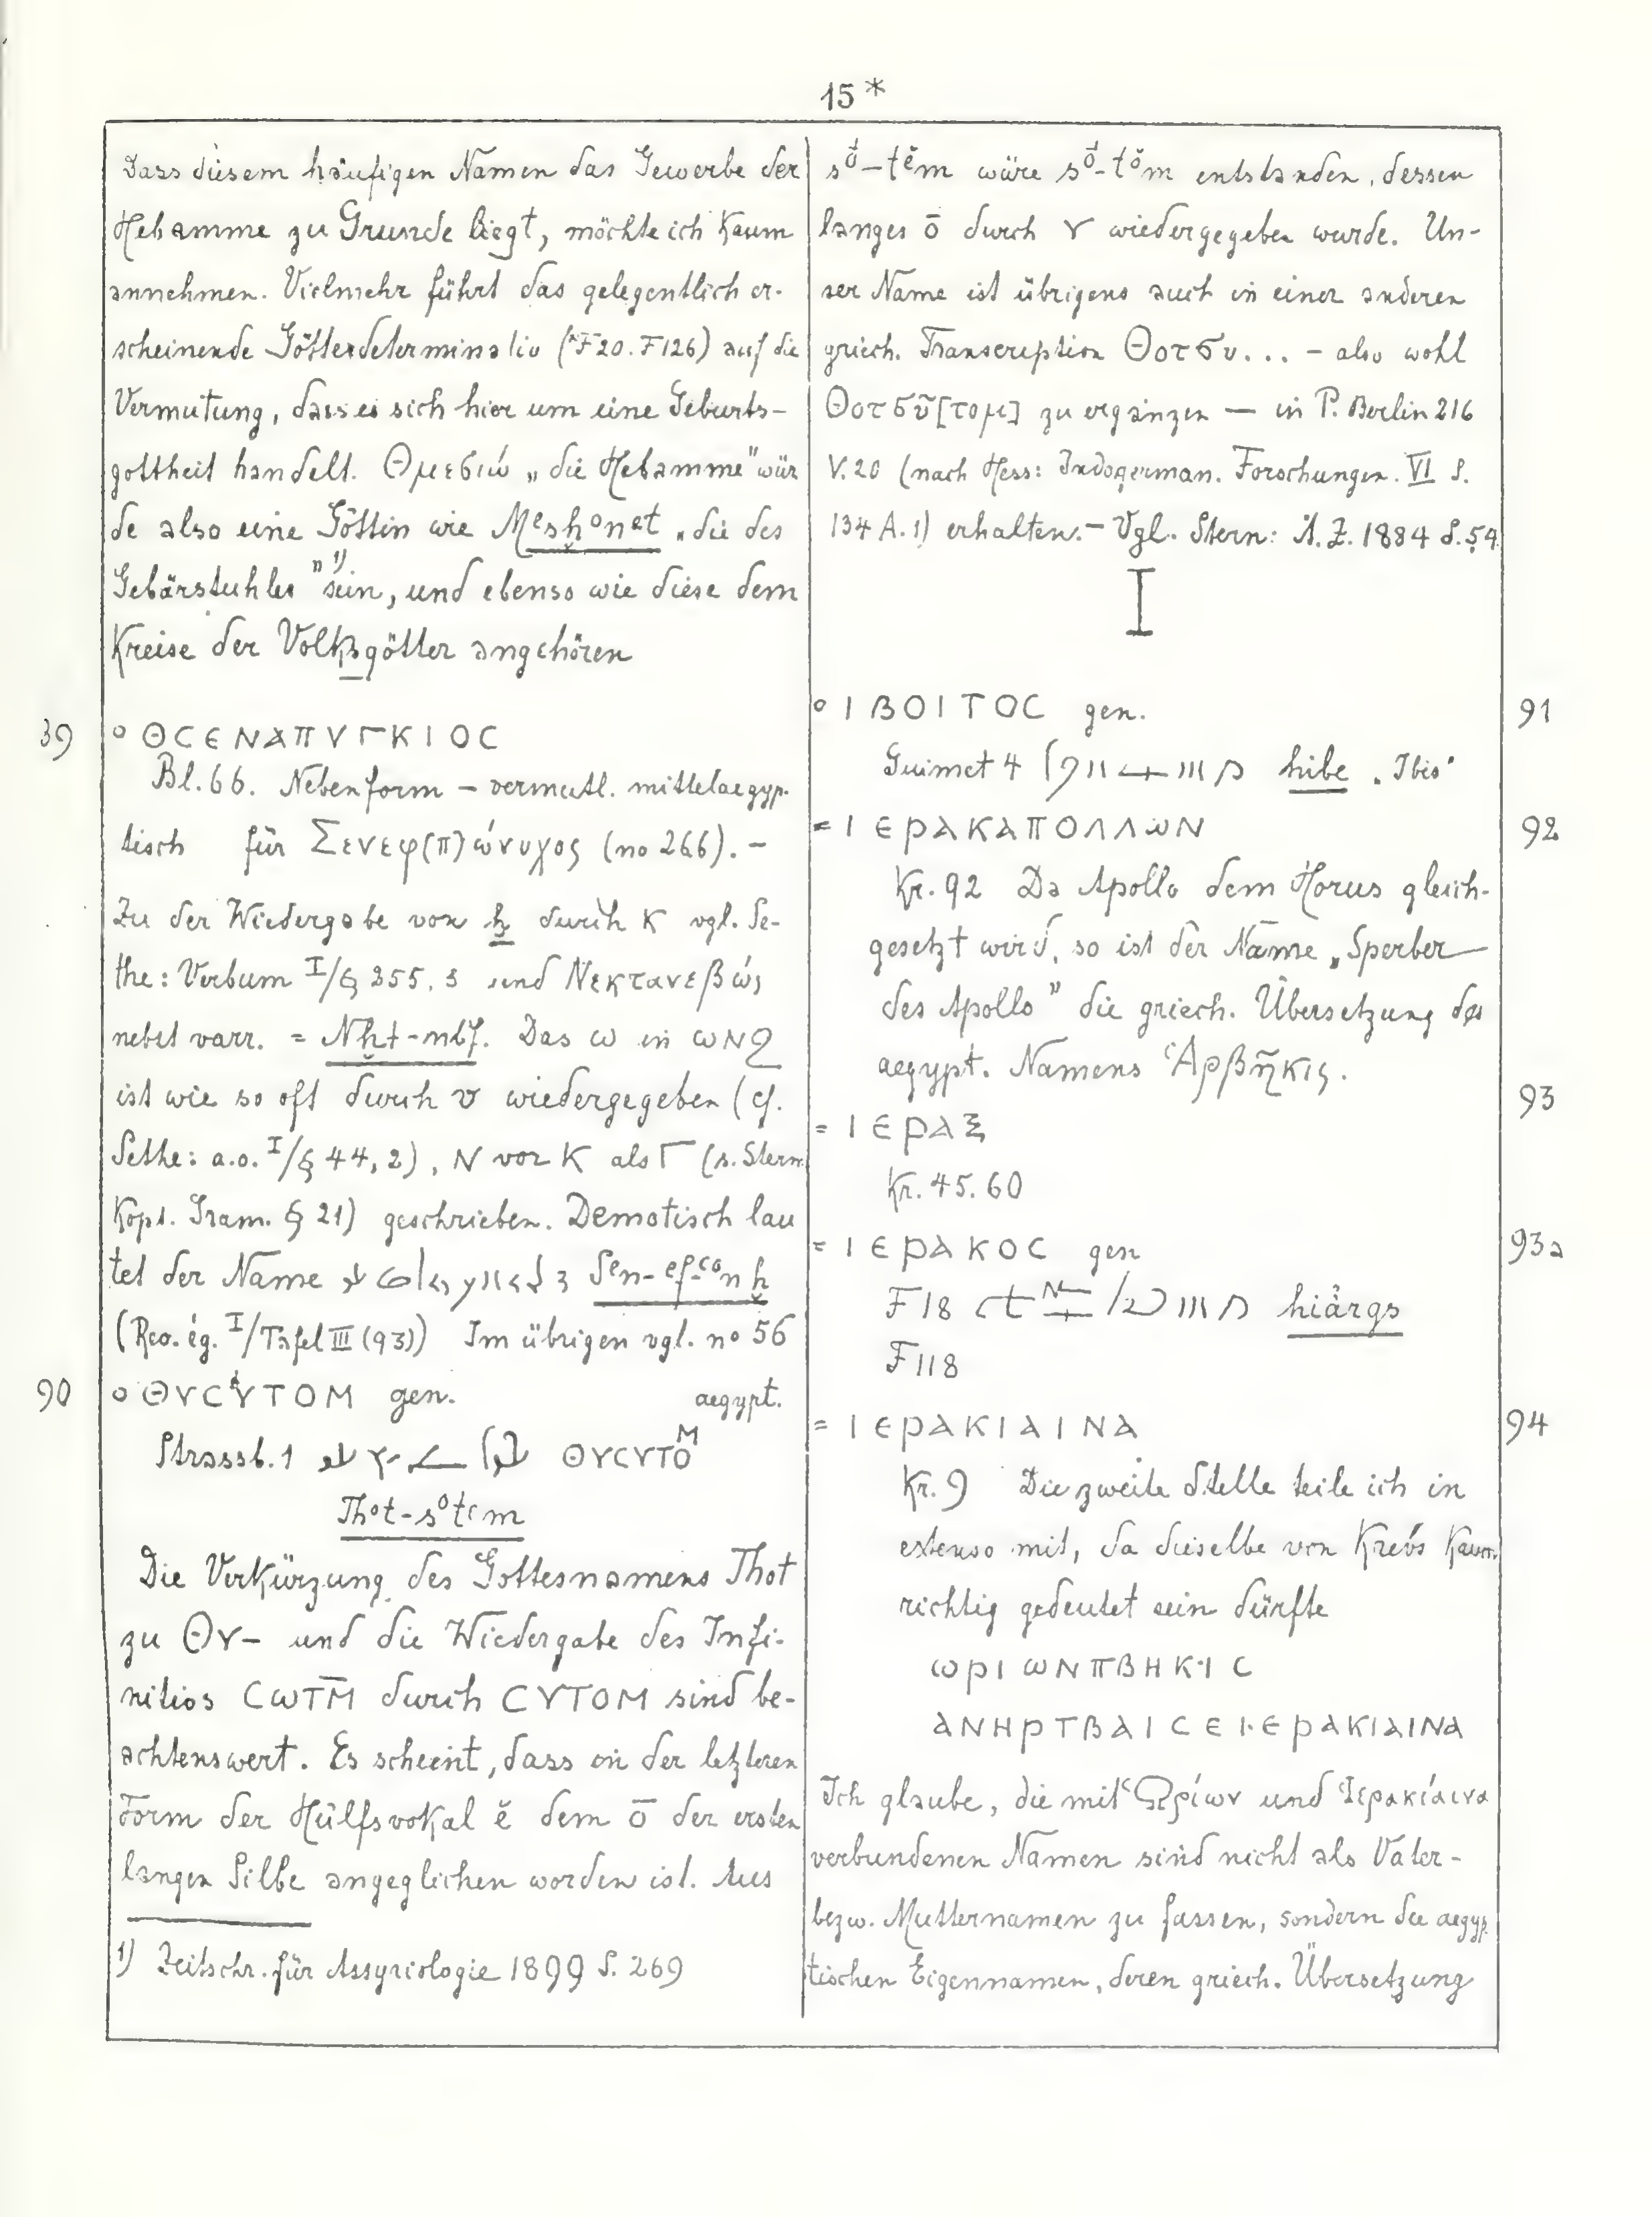 15*
Dass diesem häufigen Namen das Gewerbe der
Hebamme zu Grunde liegt, möchte ich kaum
annehmen. Vielmehr führt das gelegentlich er-
scheinende Götterdeterminativ (F20. F126) auf die
Vermutung, dass es sich hier um eine Geburts-
gottheit handelt. Θμεσιώ „die Hebamme" wür
de also eine Göttin wie Mesḫonet „die des
Gebärstuhles" 1) sein, und ebenso wie diese dem
Kreise der Volksgötter angehören
39 ° ΘCЄNAΠVΓKIOC
Bl. 66. Nebenform – vermutl. mittelaegyp-
tisch für Σενεφ(π)ώνυχος (no 266). –
Zu der Wiedergabe von ḫ durch K vgl. Se-
the: Verbum I/§ 255, 3 und Νεκτανεβώς
nebst varr. = Nḫt-nbf. Das ω in ωNϨ
ist wie so oft durch υ wiedergegeben (cf.
Sethe: a.o. I/§ 44, 2), N vor K als Γ (s. Stern
Kopt. Gram. § 21) geschrieben. Demotisch lau
tet der Name Sen-ef-ꜥonḫ
(Rev. ég. I/Tafel III (93)) Im übrigen vgl. no 56
90 ° ΘΥCΥTOM gen. aegypt.
Strassb. 1 ΘΥCΥTOM
Thot-sotem
Die Verkürzung des Gottesnamens Thot
zu ΘΥ– und die Wiedergabe des Infi-
nitivs CωTM̄ durch CΥTOM sind be-
achtenswert. Es scheint, dass in der letzteren
Form der Hülfsvokal ĕ dem ō der ersten
langen Silbe angeglichen worden ist. Aus
1) Zeitschr. für Assyriologie 1899 S. 269
sṓ-tĕm wäre sṓ-tŏm entstanden, dessen
langes ō durch Υ wiedergegeben wurde. Un-
ser Name ist übrigens auch in einer anderen
griech. Transcription Θοτσυ... – also wohl
Θοτσῦ[τομ] zu ergänzen – in P. Berlin 216
V. 20 (nach Hess: Indogerman. Forschungen. VI S.
134 A. 1) erhalten. – Vgl. Stern: Ä. Z. 1884 S. 54
I
° IBOITOC gen. 91
Guimet 4 hibe „Ibis"
= IЄPAKAΠOΛΛωN 92
Kr. 92 Da Apollo dem Horus gleich-
gesetzt wird, so ist der Name „Sperber
des Apollo" die griech. Übersetzung des
aegypt. Namens Ἁρβῆκις.
= IЄPAΞ 93
Kr. 45. 60
= IЄPAKOC gen 93a
F 18 hiârgs
F 118
= IЄPAKIAINA 94
Kr. 9 Die zweite Stelle teile ich in
extenso mit, da dieselbe von Krebs kaum
richtig gedeutet sein dürfte
ωPIωNΠBHKIC
ANHPTBAICЄIЄPAKIAINA
Ich glaube, die mit Ὡρίων und Ἱερακίαινα
verbundenen Namen sind nicht als Vater-
bezw. Mutternamen zu fassen, sondern die aegyp
tischen Eigennamen, deren griech. Übersetzung